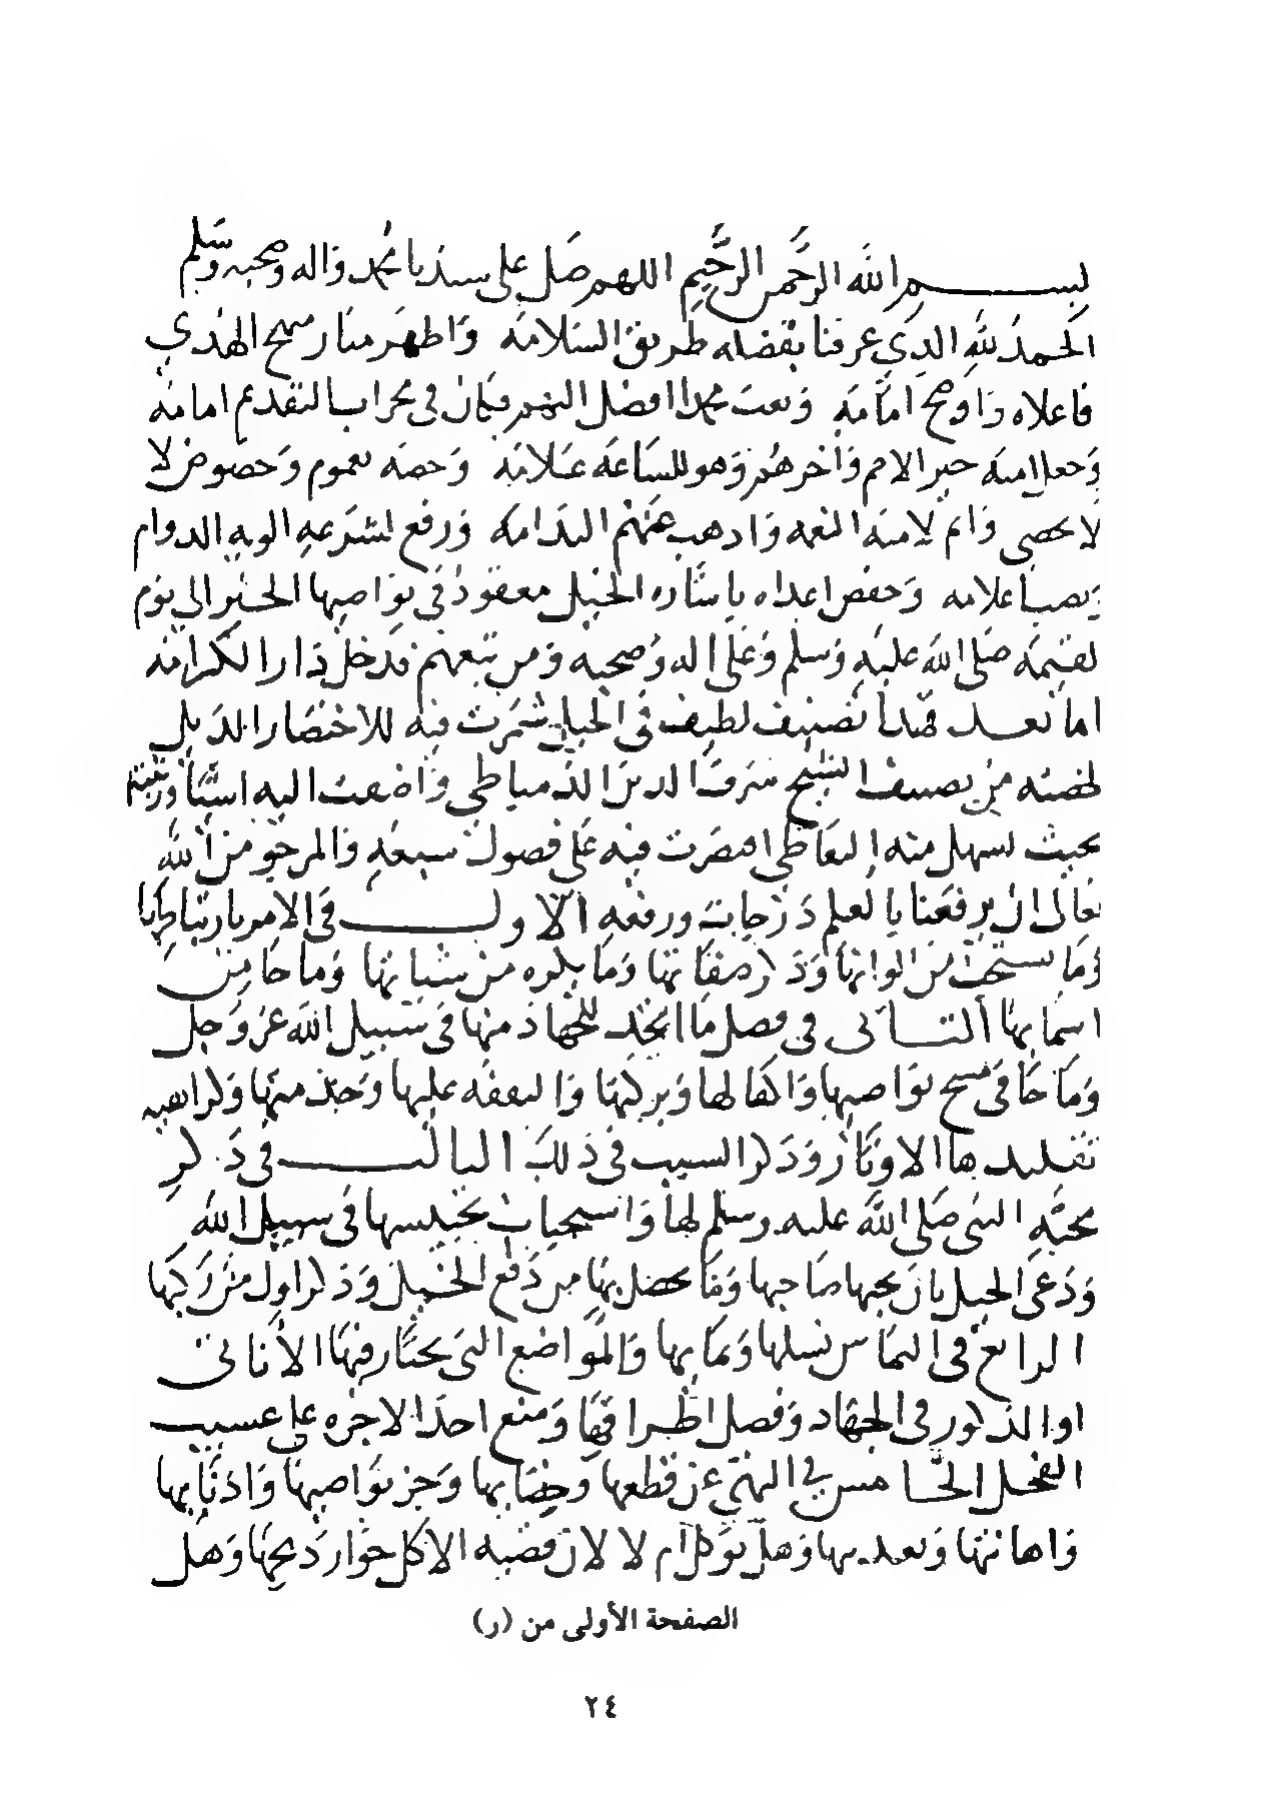 بسم الله الرحمن الرحيم اللهم صل على سيدنا محمد واله وصحبه وسلم
الحمد لله الذي عرفنا بفضله طريق السلامه واظهر منار الهدي
فاعلاه واوضح امامه وبعث محمدا افضل فكان في محراب التقديم امامه
وجعل امته خير الامم واخرهم وهو للساعه علامه وخصه بعموم وخصوص لا
لا تحصى واتم لامته النعمه واذهب عنهم الندامه ورفع لشرعه الويه الدوام
ونصب اعلامه وخفض اعداه باشاره الخيل معقود في نواصيها الخير الى يوم
لقيمه صلى الله عليه وسلم وعلى اله وصحبه ومن تبعهم فدخل دار الكرامه
اما بعد فهذا تصنيف لطيف في الخيل شمرت فيه للاختصار الذيل
لخصته من تصنيف الشيخ شرف الدين الدمياطي واضفت اليه اشيا
بحيث يسهل منه التعاطي اقتصرت فيه على فصول سبعه والمرجو من الله
تعالى ان يرفعنا بالعلم درجات ورفعه الاول في الامر بارتباطها
وما يستحب من الوانها وذكر صفاتها وما يكره من شياتها وما جا من
اسمايها الثاني في فضل ما اتخذ للجهاد منها في سبيل الله عز وجل
وما جا في مسح نواصيها واكفالها وبركتها والنفقه عليها وخدمتها وكراهيه
تقليدها الاوتار وذكر السبب في ذلك الثالث في ذكر
محبته النبي صلى الله عليه وسلم لها واستحباب تحبيسها في سبيل الله
ودعى الخيل بان يحبها صاحبها وما يحصل بها من دفع الخبل وذكر اول من ركبها
الرابع في التماس نسلها ونمايها والمواضع التي يختار فيها الاناث
او الذكور في الجهاد وفضل اطراقها ومنع اخذ الاجره على عسيب
الفحل الخامس في النهي عن قطعها وخصايها وجز نواصيها واذنابها
واهانتها وهل توكل ام لا لان قضيه الاكل جواز ذبحها وهل
الصفحة الأولى من (ر)
٢٤